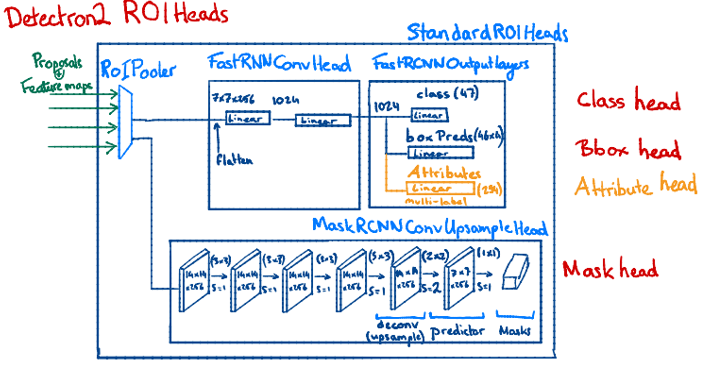 Detectron2 ROIHeads
StandardROIHeads
Proposals
+
Feature maps
RoIPooler
FastRNNConvHead
7x7x256
1024
Linear
Linear
flatten
FastRCNNOutputlayers
class (47)
1024
Linear
box Preds (46x4)
Linear
Attributes
Linear
(294)
multi-label
Class head
Bbox head
Attribute head
MaskRCNNConvUpsampleHead
(3x3)
(3x3)
(3x3)
(3x3)
(2x2)
(1x1)
14x14
x256
14x14
x256
14x14
x256
14x14
x256
14x14
x256
7x7
x256
S=1
S=1
S=1
S=1
S=2
S=1
deconv
(upsample)
predictor
Masks
Mask head